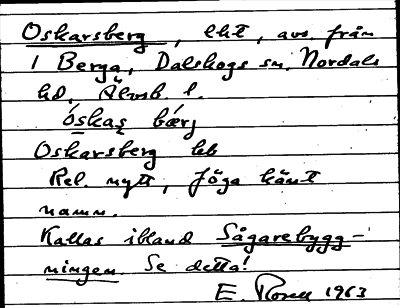 Oskarsberg, lht, avs. från
1 Berga, Dalskogs sn, Nordals
hd, Älvsb. l.
óskas bærj
Oskarsberg kb
Rel. nytt, föga känt
namn.
Kallas ibland Sågarebygg-
ningen. Se detta!
E. Rosell 1963